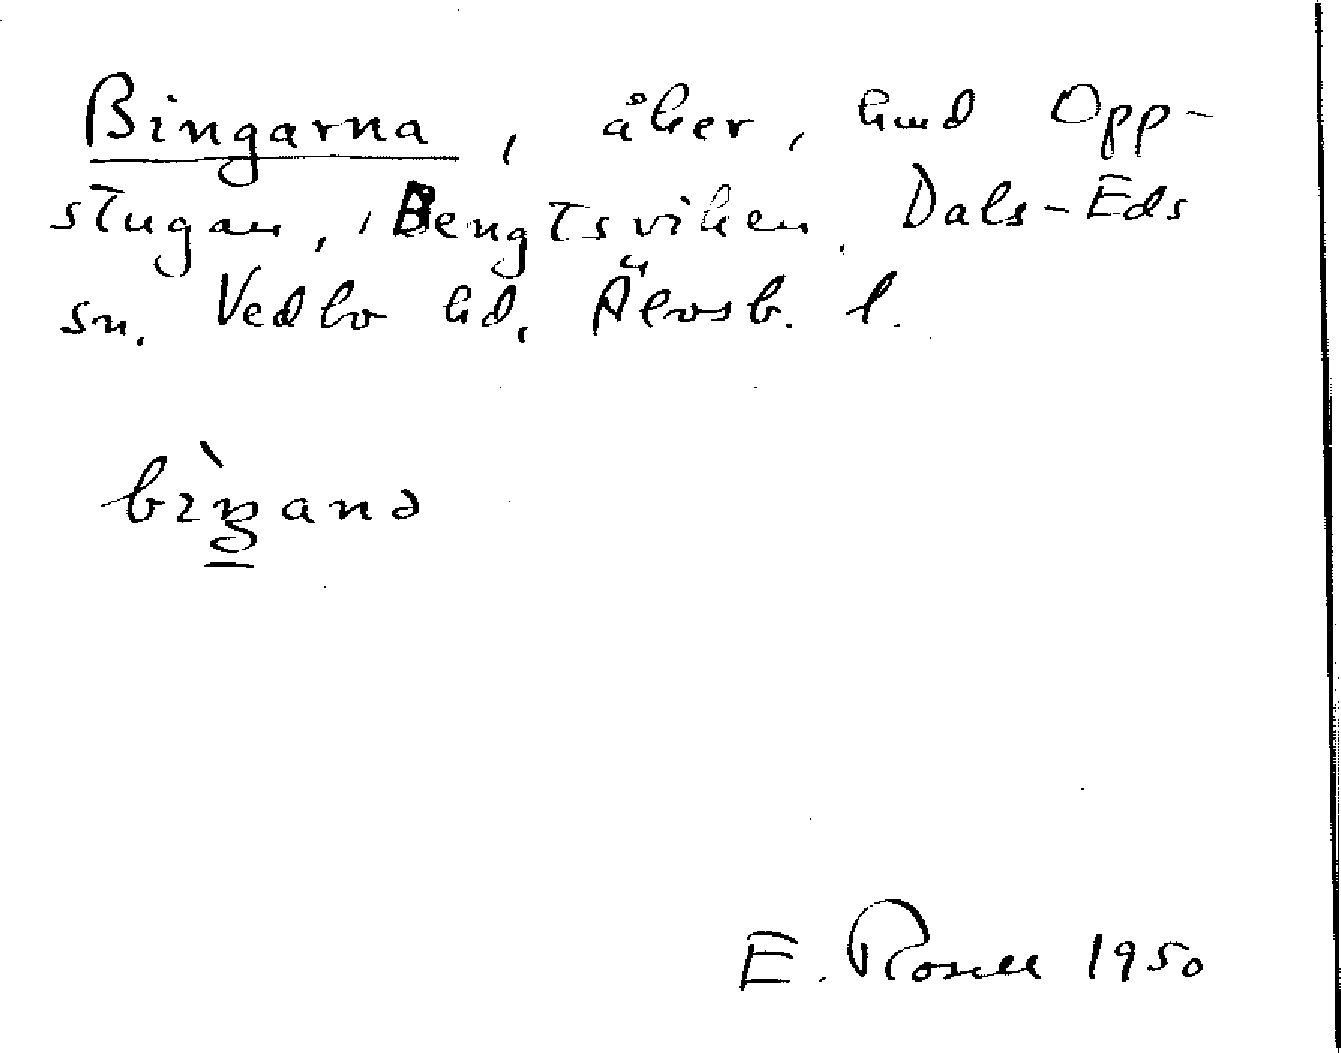 Bingarna, åker, hmd Opp-
stugan, Bengtsviken. Dals-Eds
sn. Vedbo hd, Älvsb. l.
bìŋanə
E. Rosell 1950